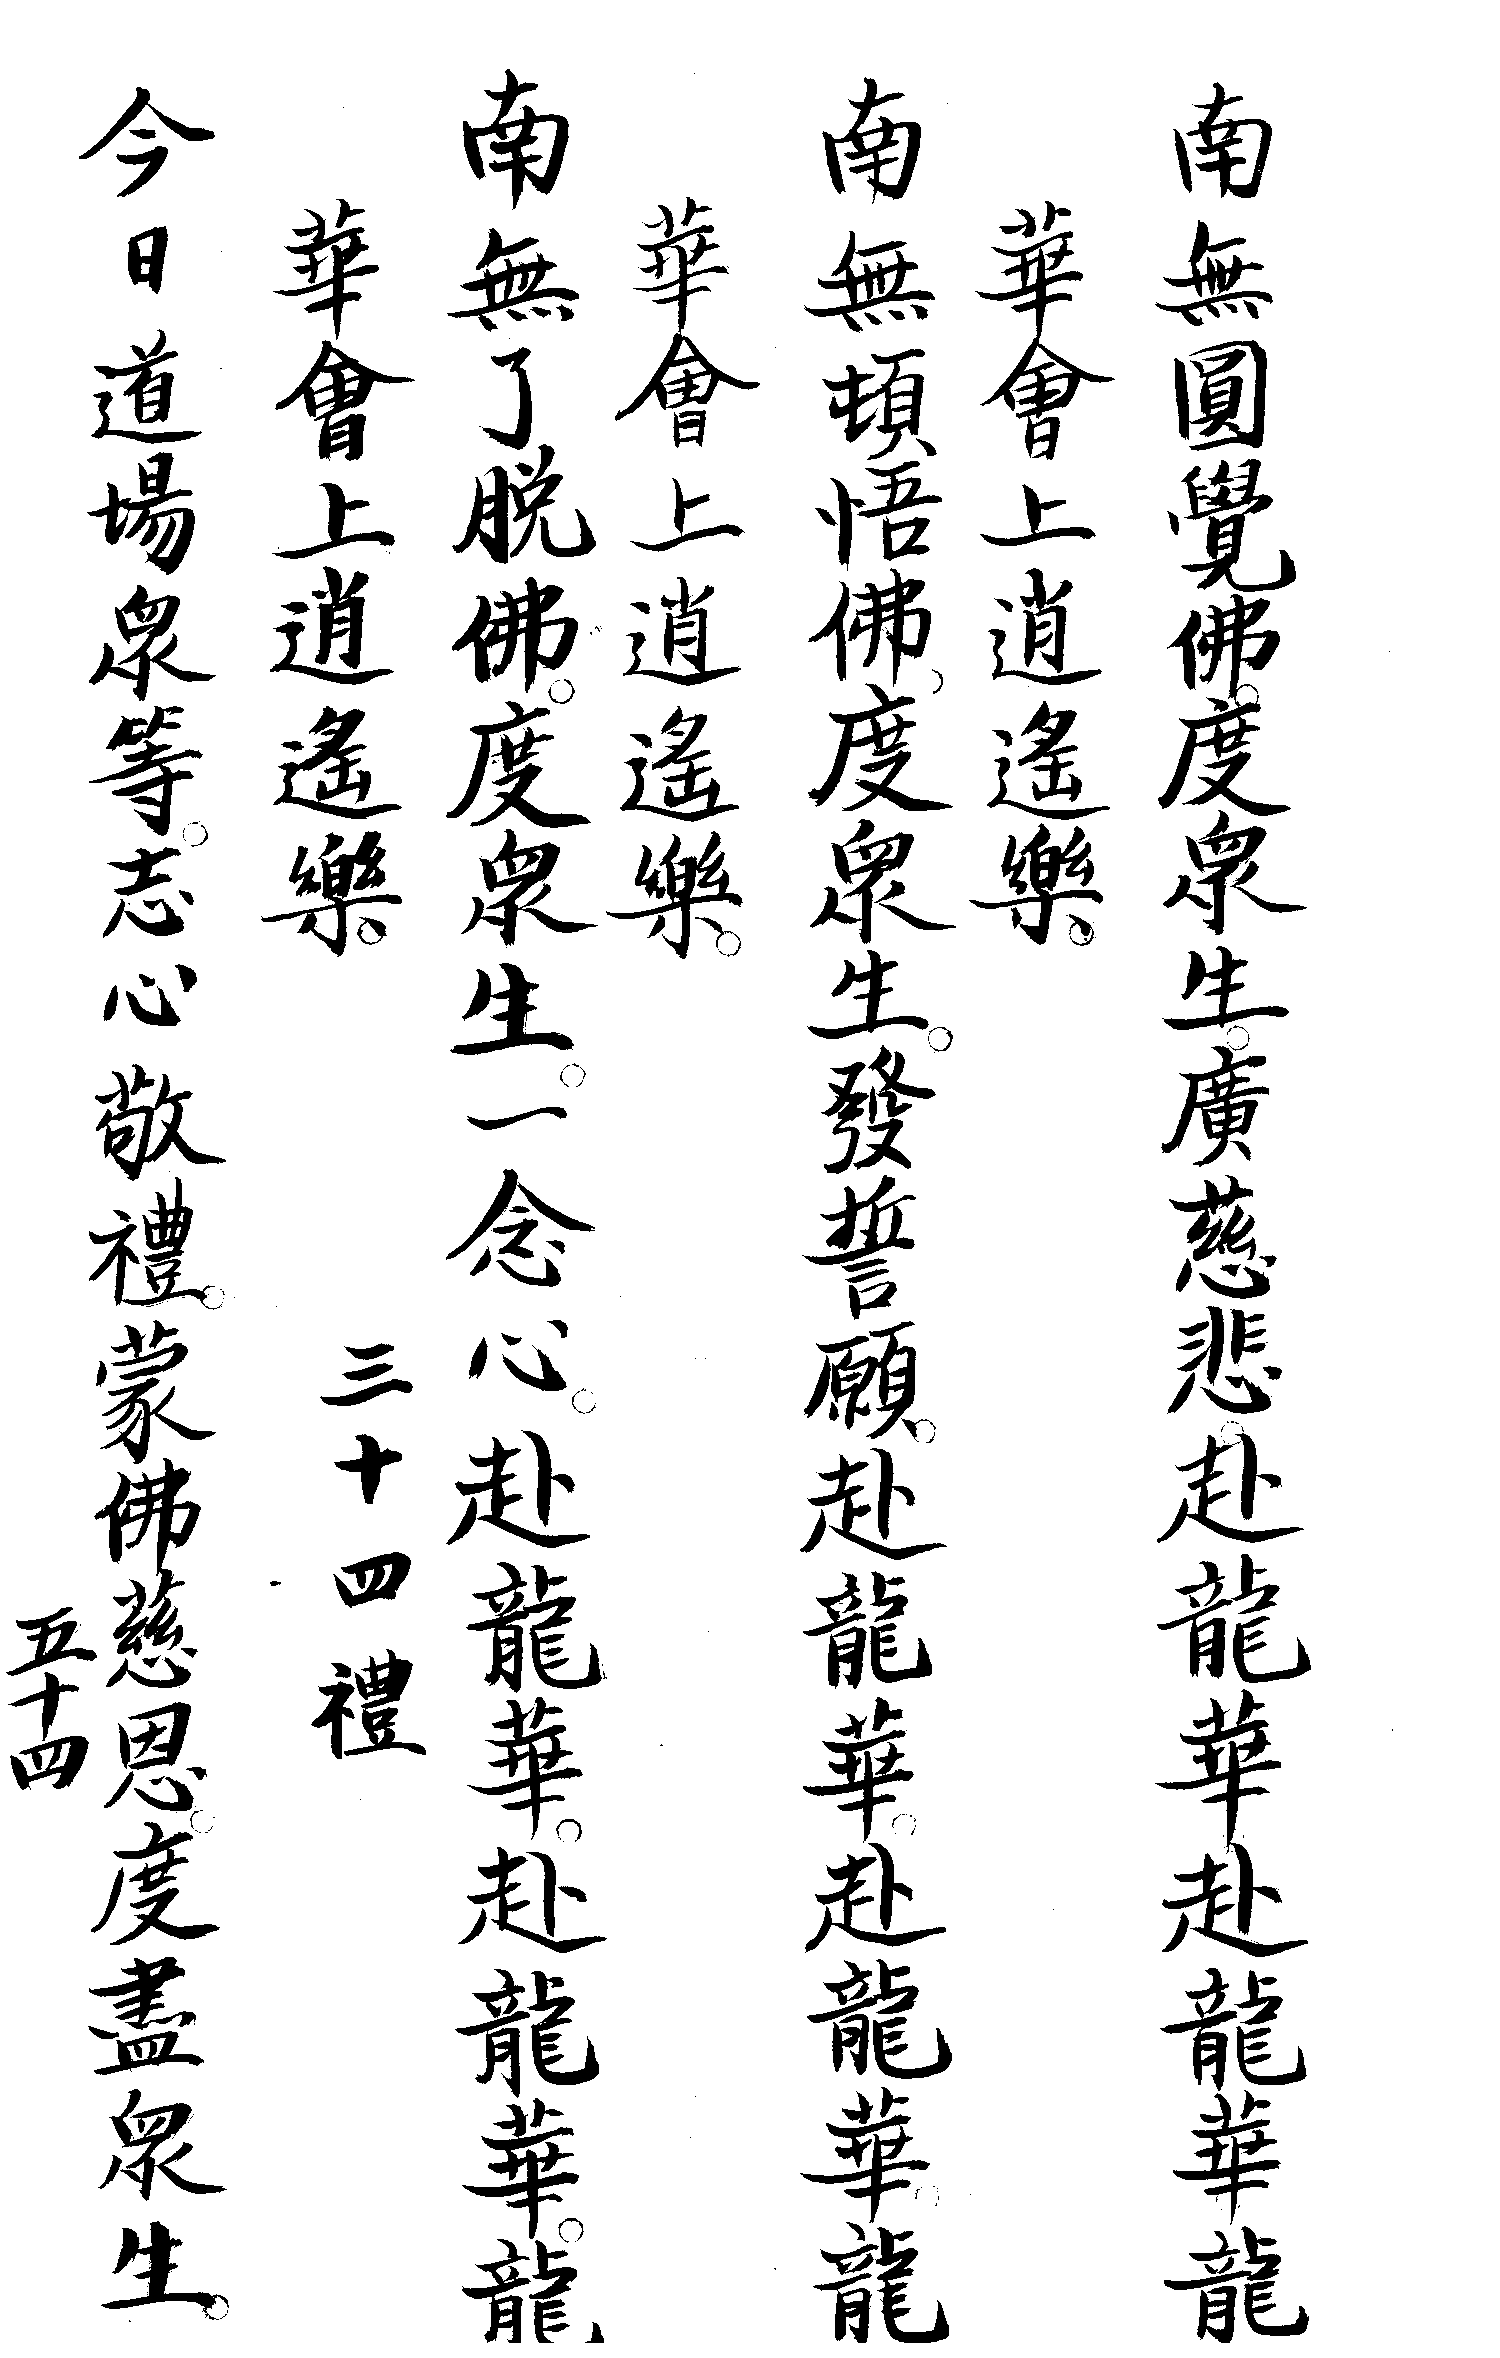 南無圓覺佛。度眾生。廣慈悲。赴龍華赴龍華龍
華會上逍遙樂。
南無頓悟佛。度眾生。發誓願。赴龍華。赴龍華。龍
華會上逍遙樂。
南無了脫佛。度眾生。一念心。赴龍華。赴龍華。龍
華會上逍遙樂。
三十四禮
今日道場眾等。志心敬禮。蒙佛慈恩。度盡眾生。
五十四